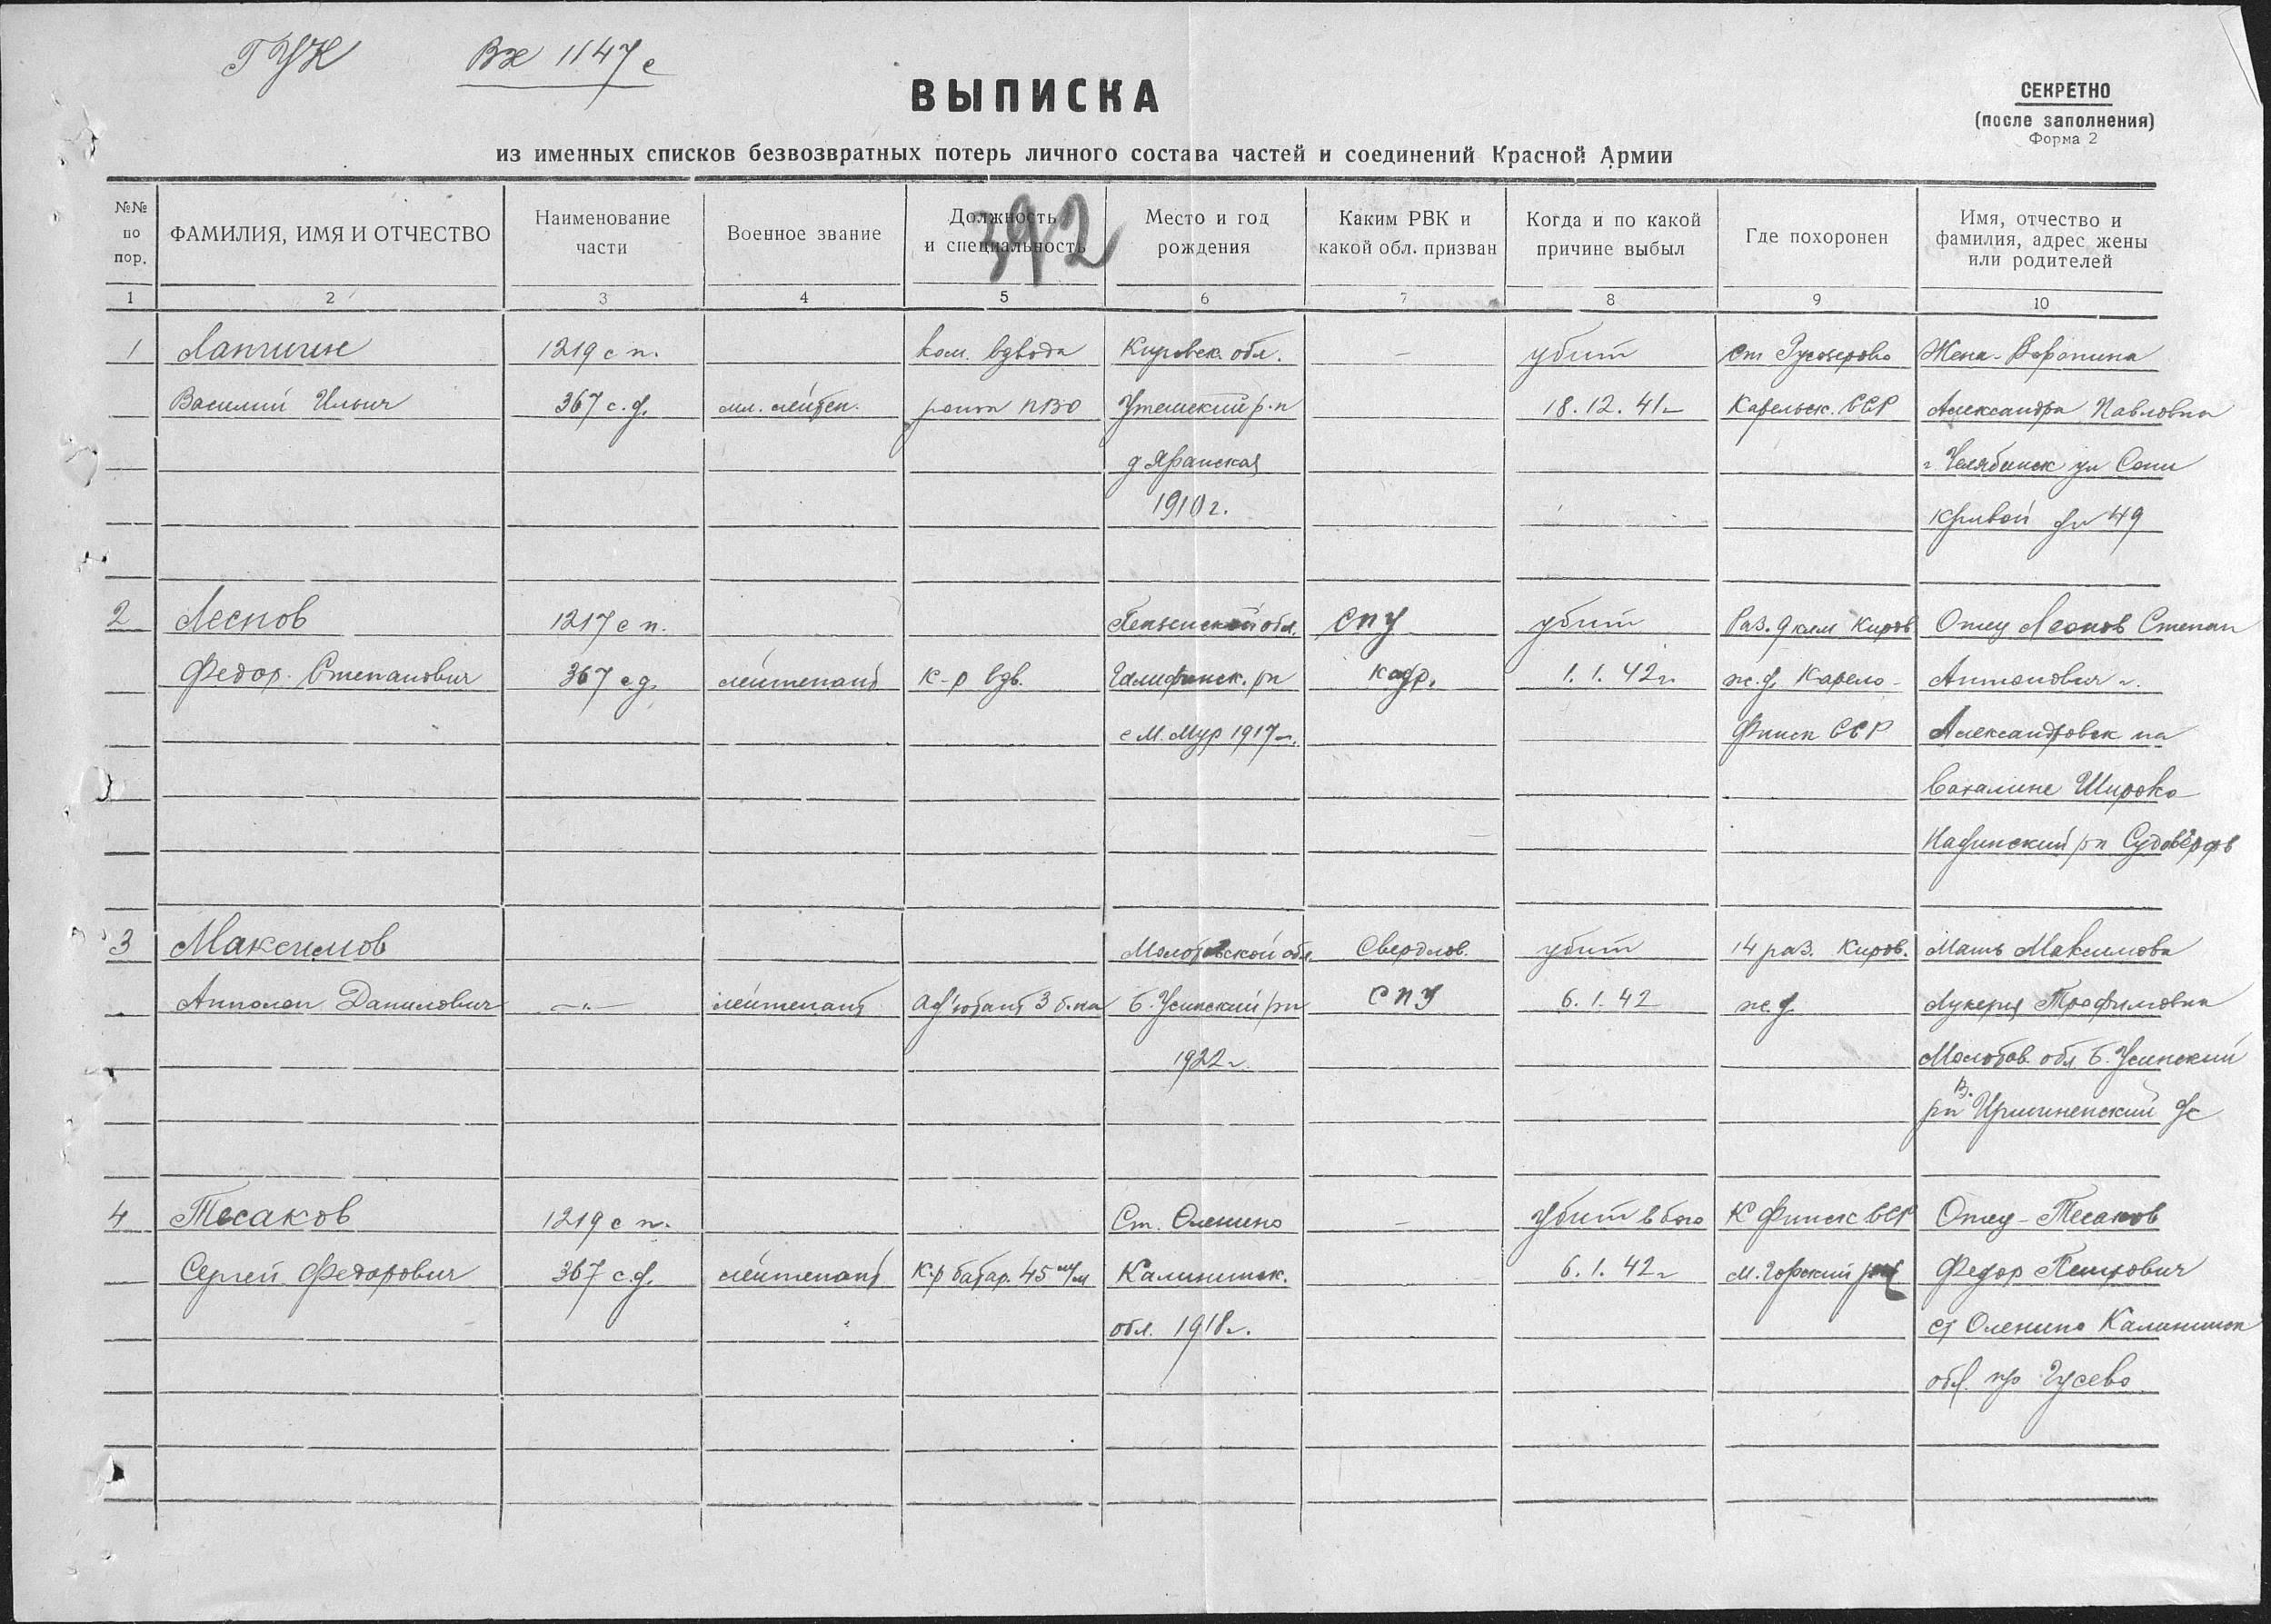 ГУК Вх 1147с
ВЫПИСКА
СЕКРЕТНО
(после заполнения)
Форма 2
из именных списков безвозвратных потерь личного состава частей и соединений Красной Армии
392
№№ по пор. ФАМИЛИЯ, ИМЯ И ОТЧЕСТВО Наименование части Военное звание Должность и специальность Место и год рождения Каким РВК и какой обл. призван Когда и по какой причине выбыл Где похоронен Имя, отчество и фамилия, адрес жены или родителей
1 2 3 4 5 6 7 8 9 10
1 Лапчигин 1219 с п. Ком. взвода Кировск. обл. — убит ст Жена - Воронина
Василий Ильич 367 с.д. мл. лейтен. роты ПВО р-н 18.12.41г Карельск. ССР Александра Павловна
д Яранская г. Челябинск ул Сони
1910г. Кривой 49
2 Леснов 1217 с п. Пензенской обл. СПУ убит Раз. 9 клм Киров Отец Степан
Федор Степанович 367 с.д. лейтенант к-р взв. рн кадр. 1.1.42г ж.д. Карело- Антонович г.
с М. Мур 1917г. Финск ССР Александровск на
Сахалине Широко
рн Судоверфь
3 Максимов Молотовской обл. Свердлов. убит 14 раз. Киров. Мать Максимова
Данилович —"— лейтенант Ад'ютант 3 б-на Б. Усинский рн СПУ 6.1.42 ж.д. Лукерия Трофимовна
1922г Молотов обл. Б. Усинский
рн В. с
4 Тесаков 1219 с п. Ст. Оленино — Убит в бою К Финск ССР Отец - Тесаков
Сергей Федорович 367 с.д. лейтенант К-р батар. 45 м/м Калининск. 6.1.42г М. Горский рн Федор Петрович
обл. 1918г. ст Оленино Калининск
обл. Гусево